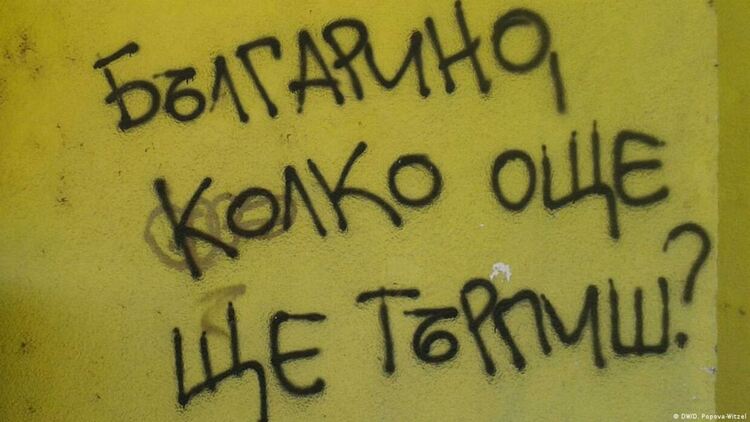 БЪЛГАРИНО,
КОЛКО ОЩЕ
ЩЕ ТЪРПИШ?
© DW/D. Popova-Witzel